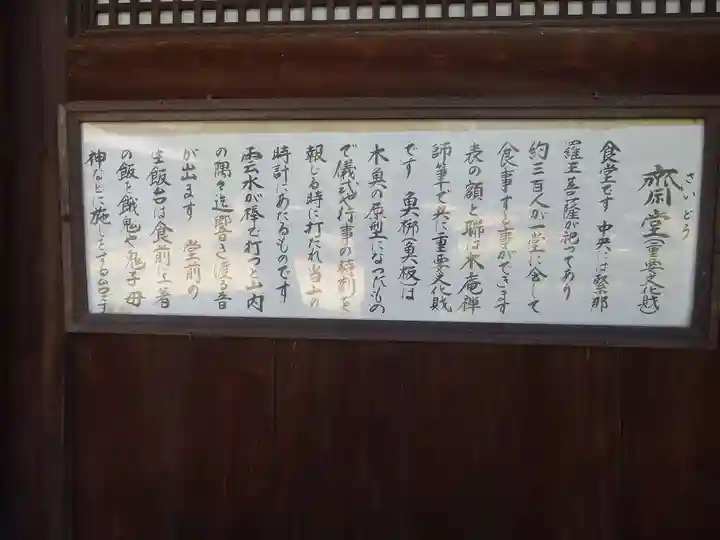 さいどう
齋堂(重要文化財)
食堂です 中央には緊那
羅王菩薩が祀ってあり
約三百人が一堂に会して
食事する事ができます
表の額と聯は木庵禅
師筆で共に重要文化財
です 魚梆(魚板)は
木魚の原型になったもの
で儀式や行事の時刻を
報じる時に打たれ当山の
時計にあたるものです
雲水が棒で打つと山内
の隅々迄響き渡る音
が出ます 堂前の
生飯台は食前に一箸
の飯を餓鬼や鬼子母
神などに施しをする台です